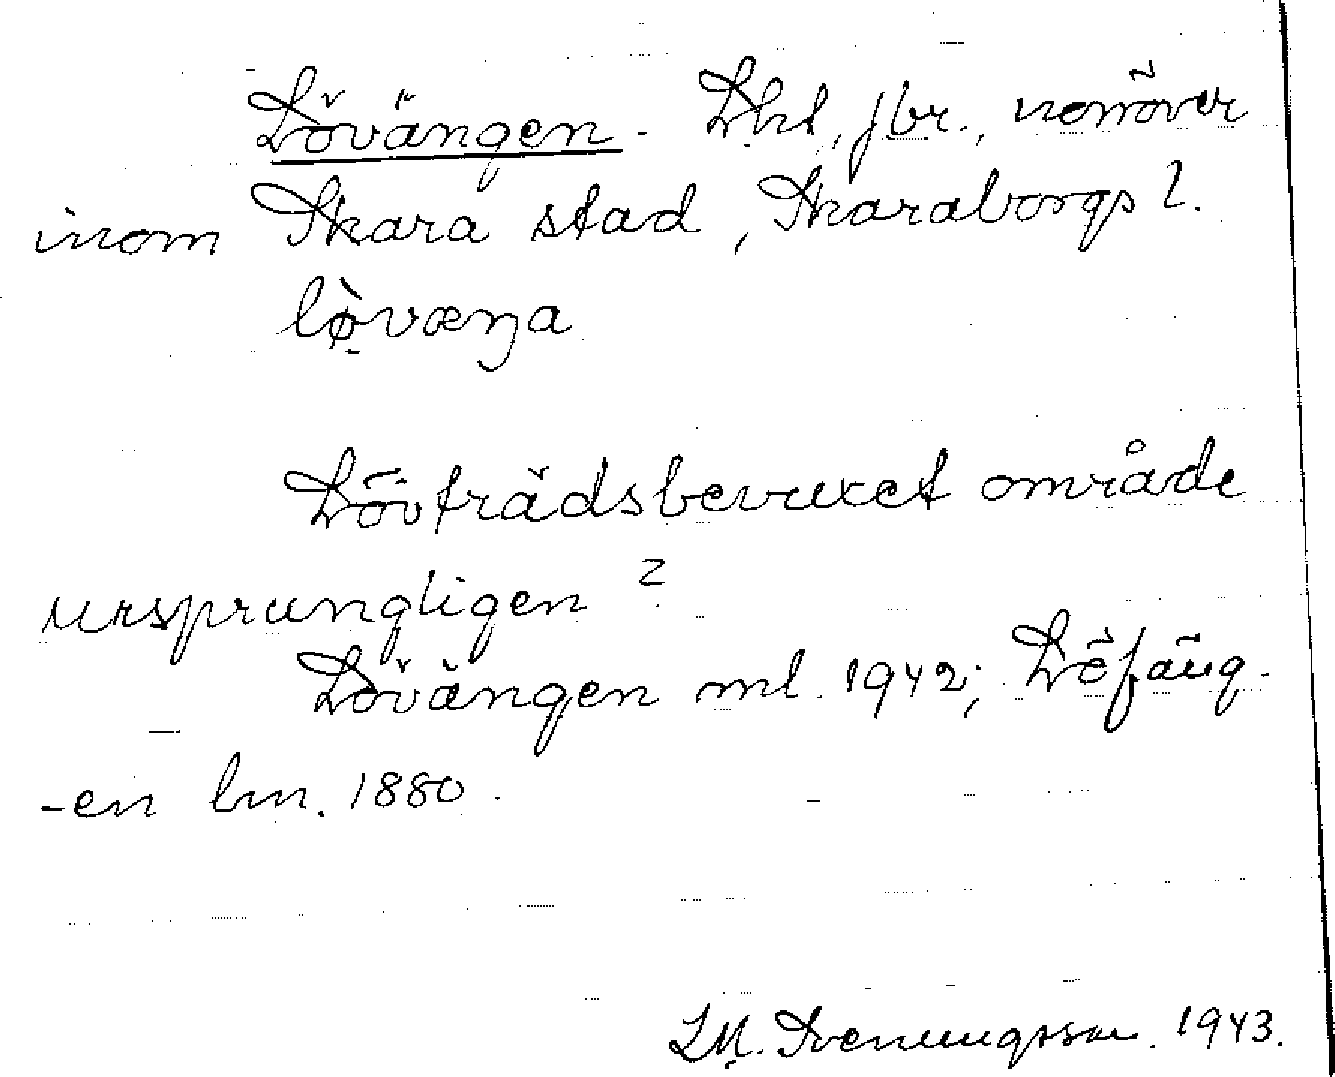 Lövängen. Lht, jbr., nomöver
inom Skara stad, Skaraborgs l.
lø̀væŋa
Lövträdsbevuxet område
ursprungligen?
Lövängen ml. 1942; Löfäng-
-en lm. 1880.
L.M. Svenungsson. 1943.